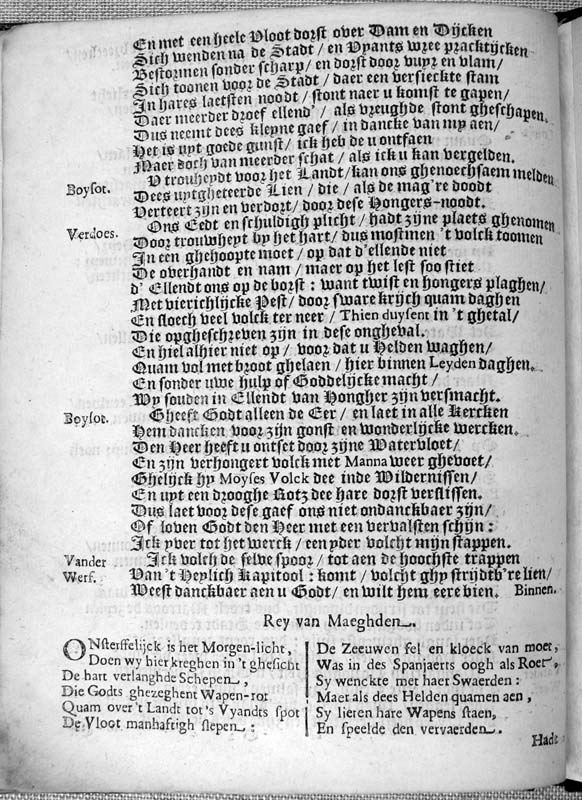 En met een heele Vloot dorst over Dam en Dijcken
Sich wenden na de Stadt / en Vyants wree practijcken
Bestormen sonder scharp / en dorst door vuyr en vlam /
Sich toonen voor de Stadt / daer een versieckte stam
In hares laetsten noodt / stont naer u komst te gapen /
Daer meerder droef ellend' / als vreughde stont gheschapen.
Dus neemt dees kleyne gaef / in dancke van my aen /
Het is uyt goede gunst / ick heb de u ontfaen
Maer doch van meerder schat / als ick u kan vergelden.
Boysot. V trouheydt voor het Landt / kan ons ghenoechsaem melden
Dees uytgheteerde Lien / die / als de mag're doodt
Verteert zijn en verdort / door dese Hongers-noodt.
Verdoes. Ons Eedt en schuldigh plicht / hadt zijne plaets ghenomen
Door trouwheyt by het hart / dus mostmen 't volck toomen
In een ghehoopte moet / op dat d'ellende niet
De overhandt en nam / maer op het lest soo stiet
d' Ellendt ons op de borst : want twist en hongers plaghen /
Met vierichlijcke Pest / door sware krijch quam daghen
En sloech veel volck ter neer / Thien duysent in 't ghetal /
Die opgheschreven zijn in dese ongheval.
En hiel alhier niet op / voor dat u Helden waghen /
Quam vol met broot ghelaen / hier binnen Leyden daghen.
En sonder uwe hulp of Goddelijcke macht /
Wy souden in Ellendt van Hongher zijn versmacht.
Boysot. Gheeft Godt alleen de Eer / en laet in alle Kercken
Hem dancken voor zijn gonst en wonderlijcke wercken.
Den Heer heeft u ontset door zijne Watervloet /
En zijn verhongert volck met Manna weer ghevoet /
Ghelijck hy Moyses Volck dee inde Wildernissen /
En uyt een drooghe Rotz dee hare dorst verslissen.
Dus laet voor dese gaef ons niet ondanckbaer zijn /
Of loven Godt den Heer met een vervalsten schijn :
Ick yver tot het werck / een yder volcht mijn stappen.
Vander Ick volch de selve spoor / tot aen de hoochste trappen
Werf. Van 't Heylich Kapitool : komt / volcht ghy strijdtb're lien /
Weest danckbaer aen u Godt / en wilt hem eere bien. Binnen.
Rey van Maeghden.
ONsterffelijck is het Morgen-licht,
Doen wy hier kreghen in 't ghesicht
De hart verlanghde Schepen,
Die Godts ghezeghent Wapen-rot
Quam over 't Landt tot's Vyandts spot
De Vloot manhaftigh slepen :
De Zeeuwen fel en kloeck van moet,
Was in des Spanjaerts oogh als Roet,
Sy wenckte met haer Swaerden :
Maer als dees Helden quamen aen,
Sy lieren hare Wapens staen,
En speelde den vervaerden.
Hadt